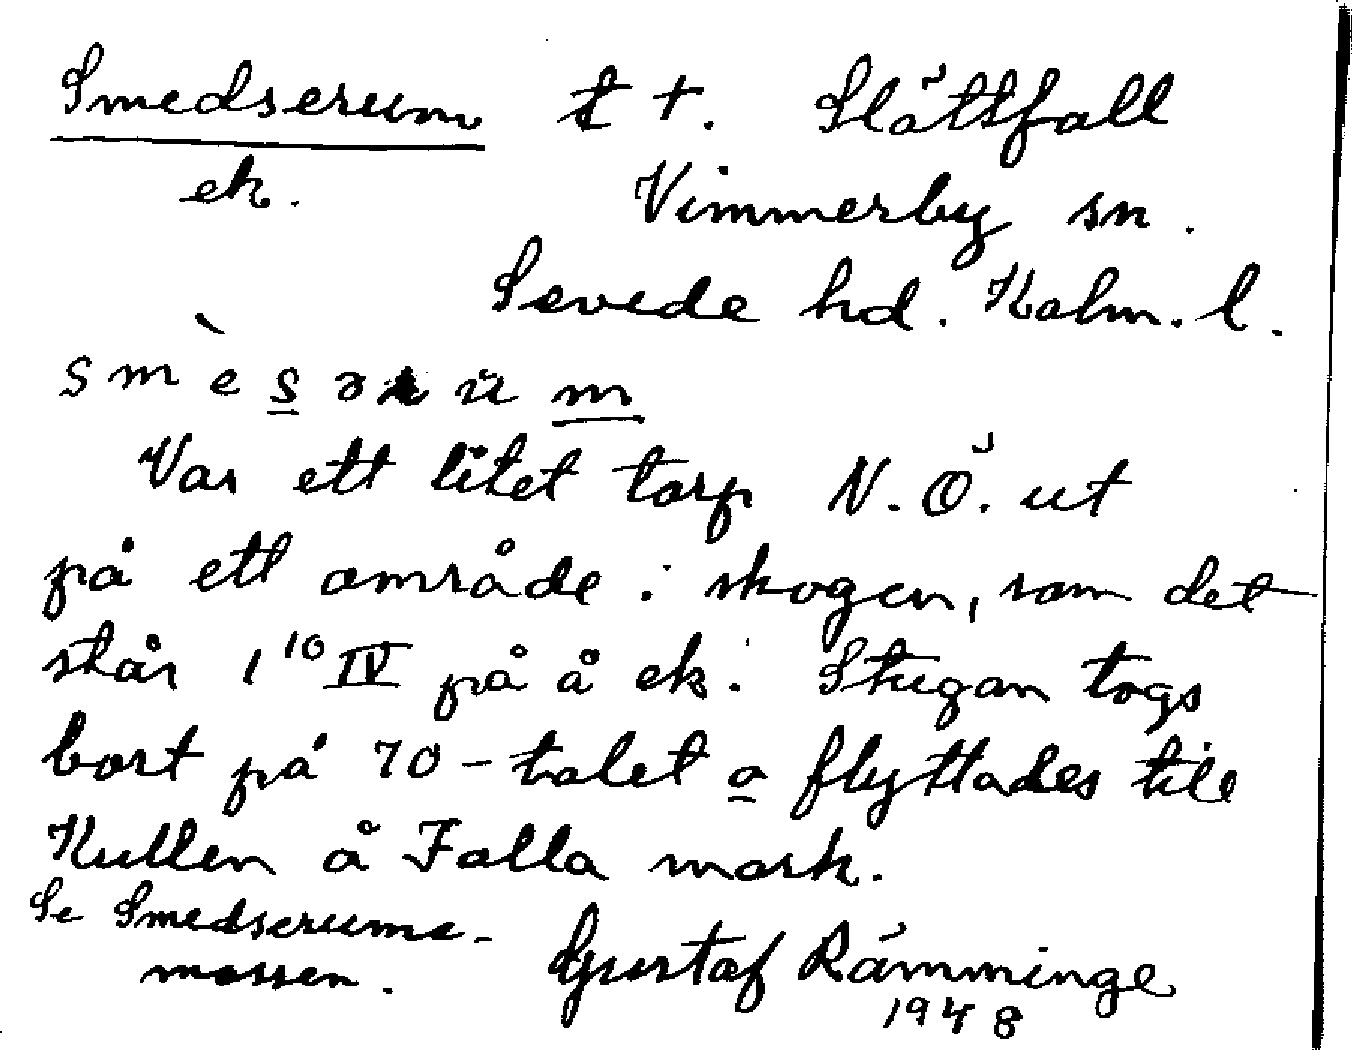 Smedserum t +. Slättfall
ek. Vimmerby sn.
Sevede hd. Kalm. l.
smèsərüm
Var ett litet torp N.Ö. ut
på ett område i skogen, som det
står 1 10 IV på å ek. Stugan togs
bort på 70-talet o flyttades till
Kullen å Falla mark.
Se Smedserums-
mossen. Gustaf Rämminge
1948